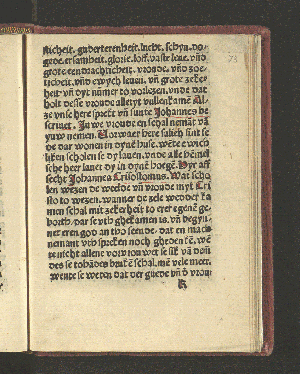 ſticheit. gaderterenheit. lucht. ſchyn. do-
gede. erſamheit. glorie. loff. vaſte leue. vn̄
grote eendrachticheit. vroude. vn̄ zoe-
ticheit. vn̄ ewych leuen. vn̄ grote zeker
heit vn̄ dyt nūmer to vorlezen. vnde dat
holt deſſe vroude alletyt vullenkamē Al-
ze vnſe here ſpect vn̄ ſunte Johannes be
ſcriuet. Ju we vroude en ſchal nemāt vā
yuw nemen. Vorwaer here ſalich ſint ſe
de dar wonen in dynē huſe. wēte e wich
liken ſcholen ſe dy lauen. vnde alle vn̄
ſche heer lauet dy in dynē
ſecht Johannes Criſoſtomus. Wat ſcha
len wezen de weelde vn̄ vroude myt Criſ
ſto to wezen. wanner de zele weder ka
men ſchal mit zekerheit to erer egenē ge-
borth. dar ſe vth ghekamen is. vn̄ begyn
net eren god an tho ſeende. dat en mach
nemant vth ſpreken noch ghedenkē. wē
te nicht allene vorurou wet ſe ſik vā dem̄
des ſe tohādes brukē ſchal. mē vele meer.
wente ſe weten dat der guede vn̄ d vrou
K